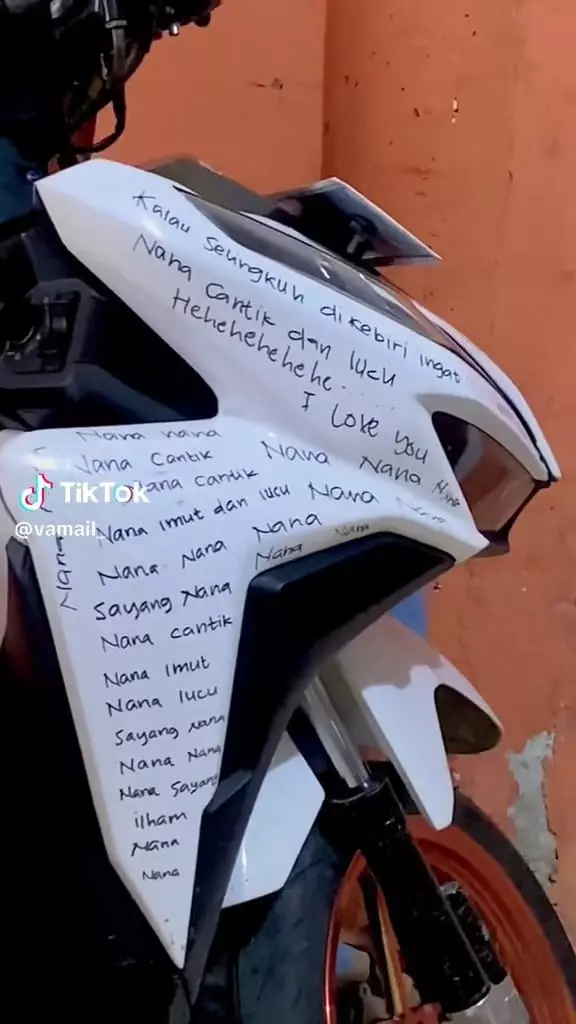 Kalau Seungkuh dikebiri ingat
Nana Cantik dan lucu
Hehehehehehe.....
I Love you
Nana nana
Nana Cantik
Nana Nana Nana
Nana cantik
Nana imut dan lucu Nana Nana
Nana Nana Nana
Nana Nana
Sayang Nana
Nana cantik
Nana Imut
Nana lucu
Sayang Nana
Nana Nana
Nana Sayang
ilham
Nana
Nana
Nana
TikTok
@vamail_